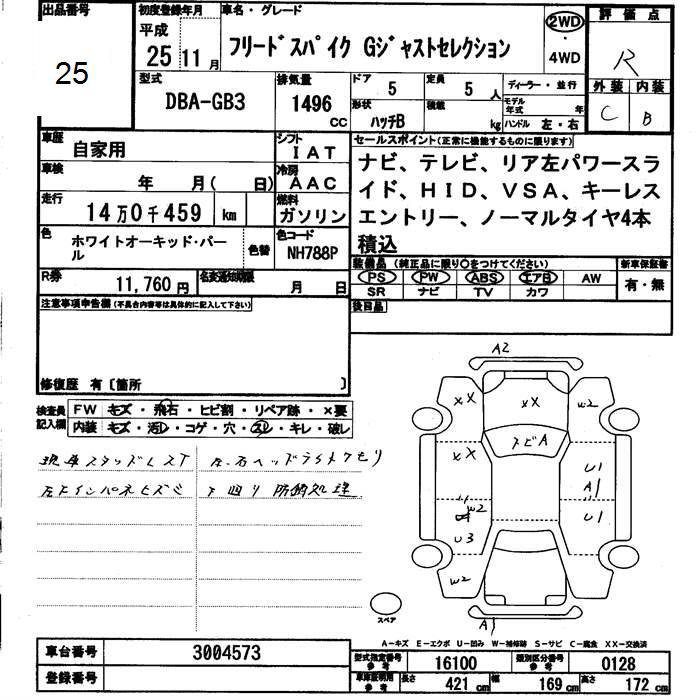 出品番号
25
初度登録年月
平成
25年11月
車名・グレード
フリードスパイク Gジャストセレクション
2WD
・
4WD
評価点
R
外装 内装
C B
型式
DBA-GB3
排気量
1496
CC
ドア
5
定員
5人
形状
ハッチB
積載
kg
ディーラー・並行
モデル年式 年
ハンドル 左・右
車歴
自家用
シフト
IAT
車検
年 月(日)
冷房
AAC
走行
14万0千459 km
燃料
ガソリン
色
ホワイトオーキッド・パール
色替
色コード
NH788P
R券
11,760円
名変通知期限
月 日
セールスポイント(正常に機能するものに限ります)
ナビ、テレビ、リア左パワースラ
イド、HID、VSA、キーレス
エントリー、ノーマルタイヤ4本
積込
装備品(純正品に限り○をつけてください)
PS PW ABS エアB AW
SR ナビ TV カワ
新車保証書
有・無
後日品
注意事項申告欄(不具合内容等は具体的に記入して下さい)
修復歴 有〔箇所 〕
検査員
記入欄
FW キズ・飛石・ヒビ割・リペア跡・×要
内装 キズ・汚レ・コゲ・穴・スレ・キレ・破レ
現車スタッドレスT
左、右ヘッドライトクモリ
左Fインパネヒズミ
下回り防錆処理
A2
XX
XX
W2
トビA
XX
U1
A1
W2
U1
U3
W2
A1
スペア
A-キズ E-エクボ U-凹み W-補修跡 S-サビ C-腐食 XX-交換済
車台番号
3004573
登録番号
型式指定番号
参考
16100
類別区分番号
参考
0128
車庫証明用
参考
長さ
421cm
幅
169cm
高さ
172cm